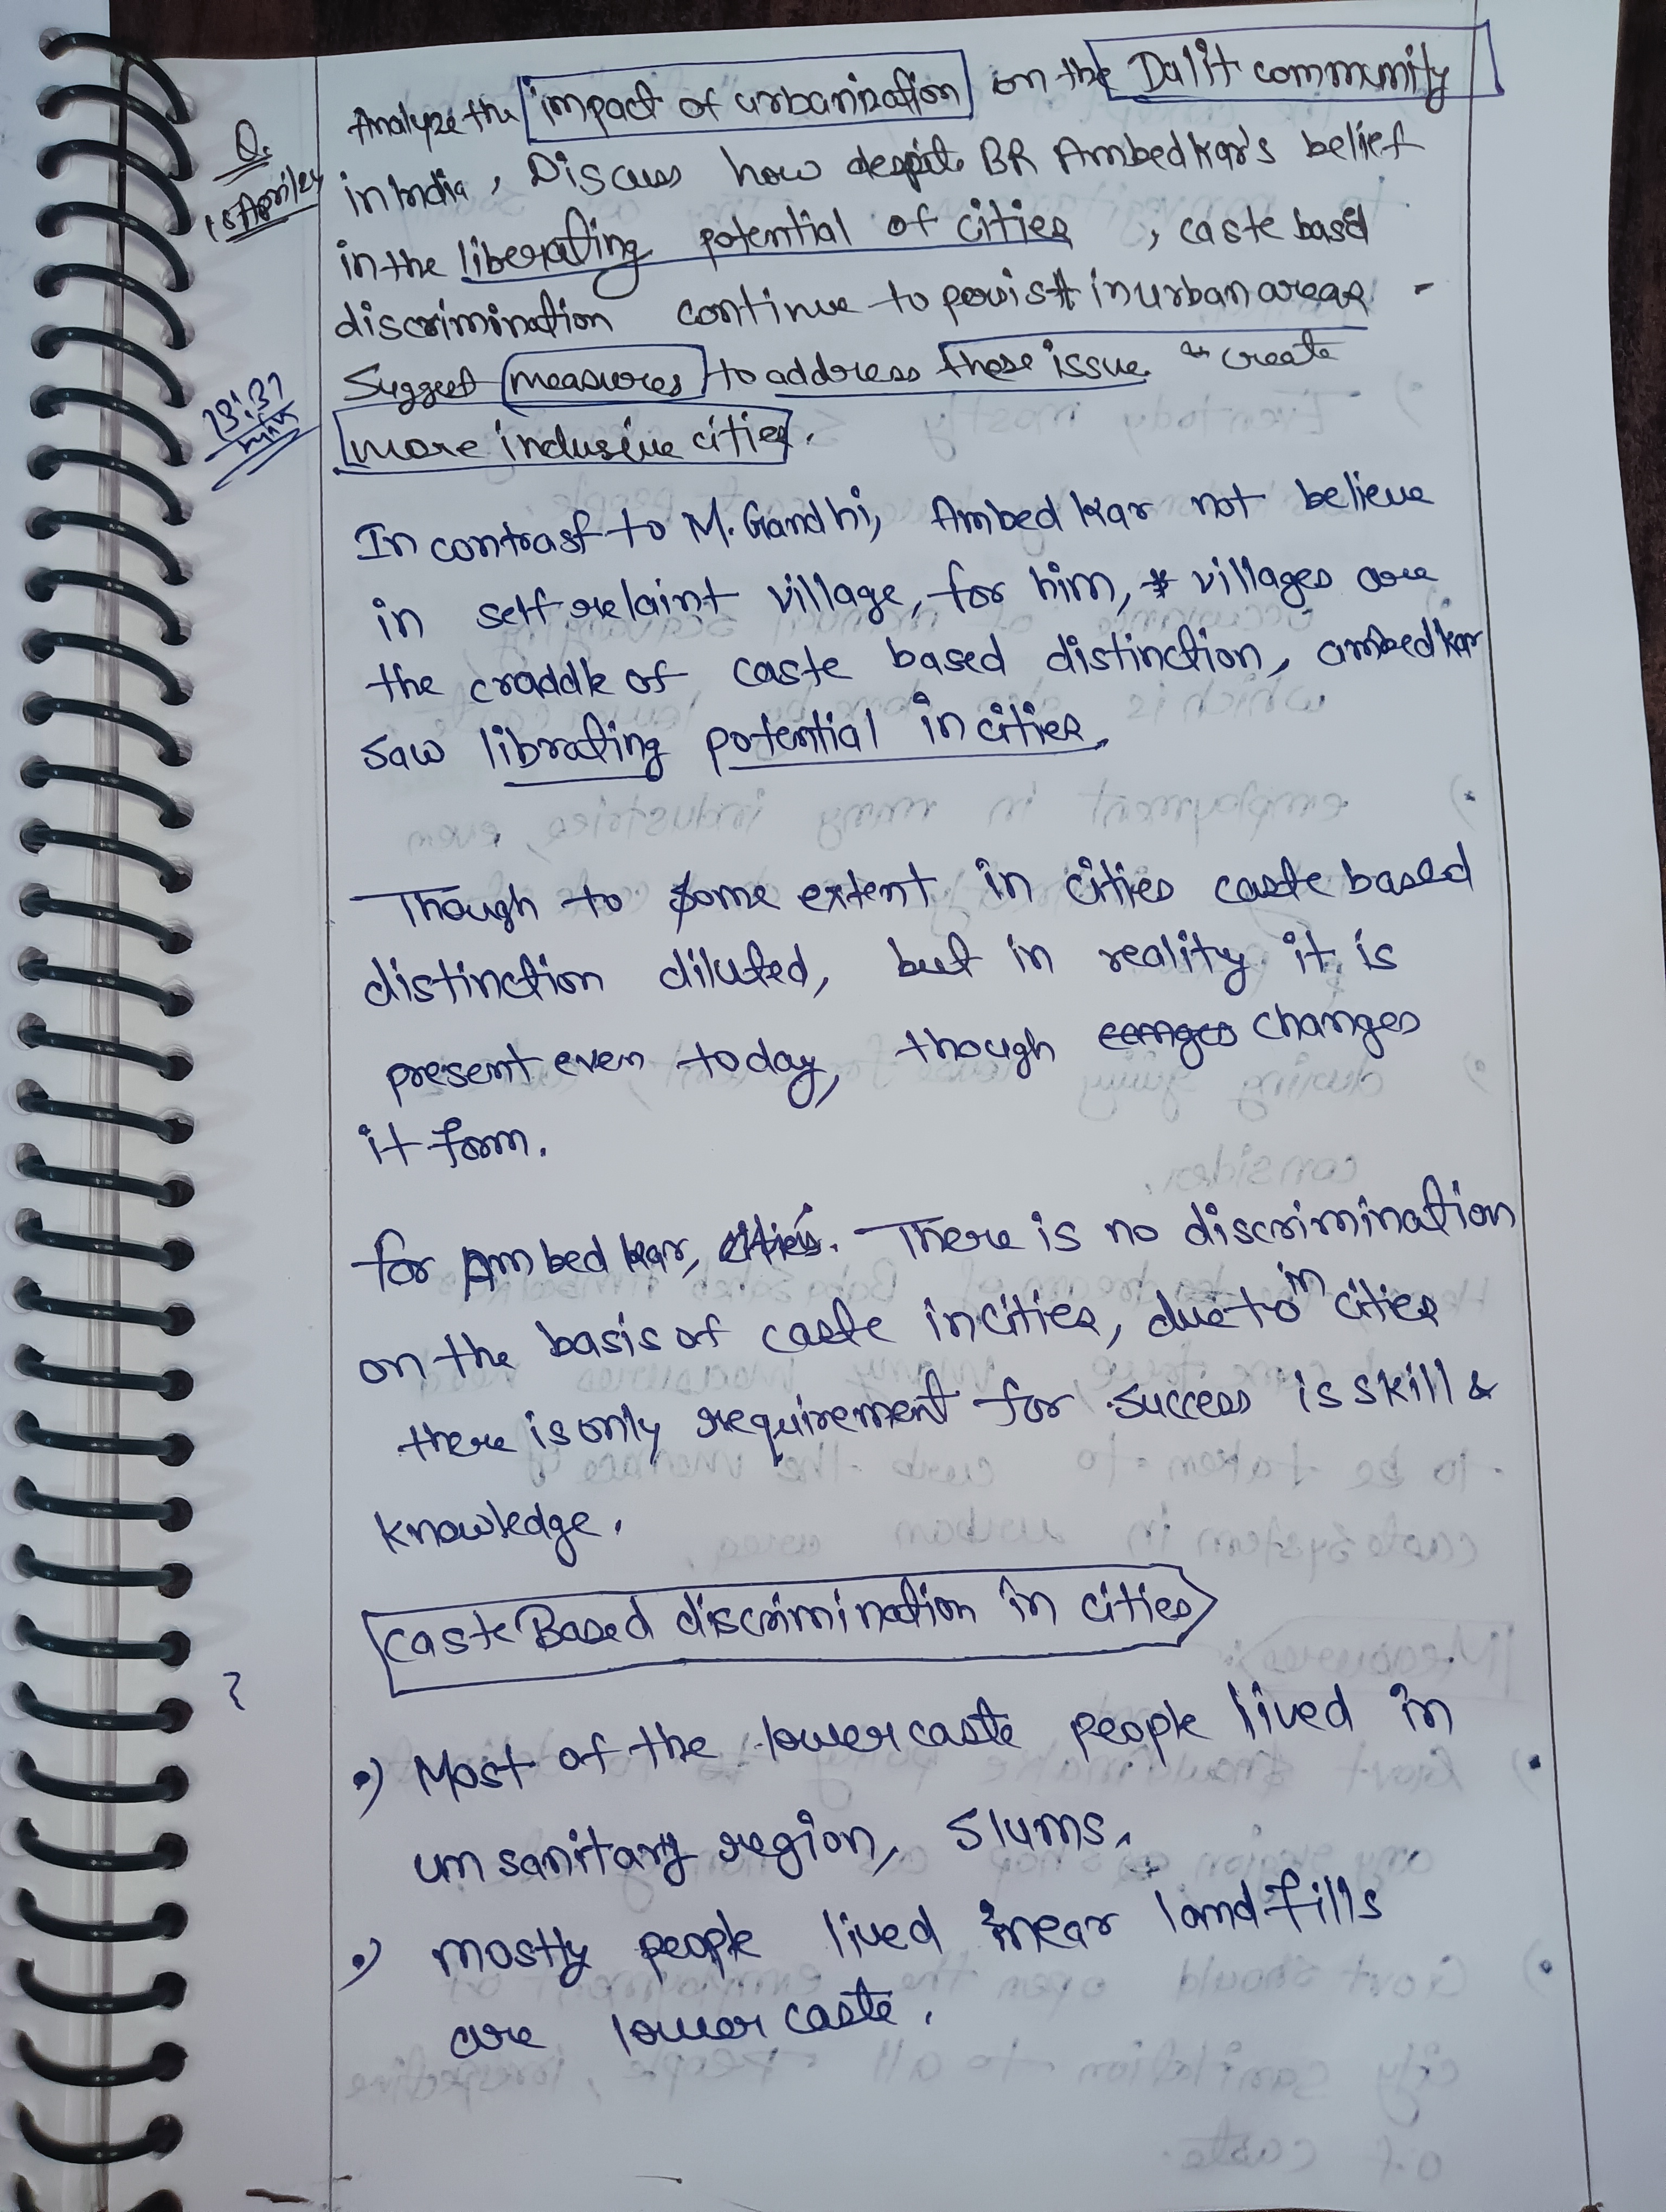 Q.
15 April/24
Analyze the impact of urbanization on the Dalit community
in India, Discuss how despite BR Ambedkar's belief
in the liberating potential of cities, caste based
discrimination continue to persist in urban areas.
Suggest measures to address these issue & create
more inclusive cities.
In contrast to M. Gandhi, Ambedkar not believe
in self relaint village, for him, villages are
the craddle of caste based distinction, ambedkar
saw librating potential in cities.
Though to some extent in cities caste based
distinction diluted, but in reality it is
present even today, though changes
it form.
for Ambedkar, There is no discrimination
on the basis of caste in cities, due to in cities
there is only requirement for success is skill &
knowledge.
Caste Based discrimination in cities
•) Most of the lower caste people lived in
unsanitary region, slums.
•) mostly people lived near landfills
are lower caste.